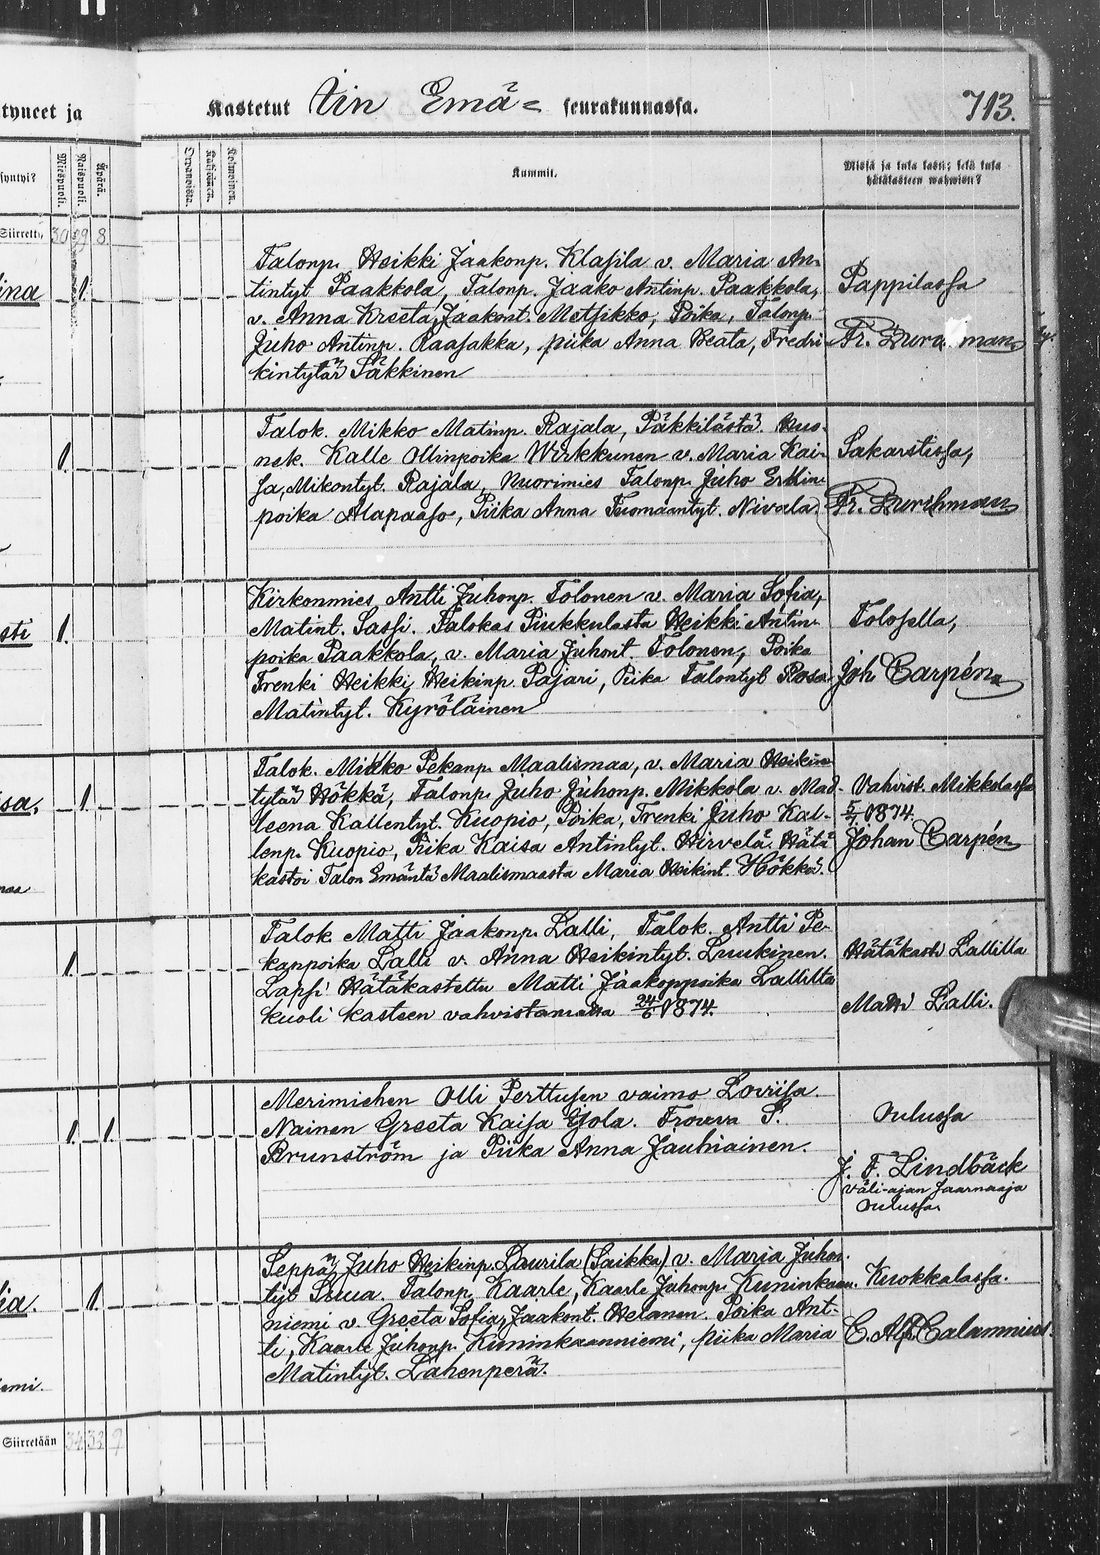 tyneet ja
Kastetut Iin Emä= seurakunnassa.
713.
syntyi?
Miespuoli.
Naispuoli.
Äpärä.
Kaksoinen.
Kolmoinen.
Kummit.
Missä ja kuka kasti; sekä kuka
hätäkasteen wahwisti?
Siirrett. 30 29 8
ina 1.
Talonp. Heikki Jaakonp. Klasila v. Maria An-
tintyt Paakkola, Talonp. Jaako Antinp. Paakkola,
v. Anna Kreeta, Jaakont. Metsikko, Poika, Talonp
Juho Antinp. Raasakka, piika Anna Beata, Fredri-
kintytär Säkkinen
Pappilassa
Fr. Durchman
1.
Talok. Mikko Matinp. Rajala, Päkkilästä. Kuo-
nek. Kalle Ollinpoika Wirkkunen v. Maria Kai-
sa, Mikontyt. Rajala, Nuorimies Talonp. Juho Erkin
poika Alapaaso, Piika Anna Tuomaantyt. Nivala.
Sakarstissa,
Fr. Durchman
sti 1.
Kirkonmies Antti Juhonp. Tolonen v. Maria Sofia,
Matint. Sassi. Talokas Piukkulasta Heikki Antin-
poika Paakkola, v. Maria Juhont. Tolonen, Poika
Trenki Heikki Heikinp. Pajari, Piika Talontyt Rosa
Matintyt. Kyröläinen
Tolosella,
Joh Carpén
isa, 1
Talok. Mikko Pekanp. Maalismaa, v. Maria Heikin
tytär Hökkä, Talonp. Juho Juhonp. Mikkola v. Mad-
leena Kallentyt. Kuopio, Poika, Trenki Juho Kal-
lenp. Kuopio, Piika Kaisa Antintyt. Hirvelä. Hätä
kastoi Talon Emäntä Maalismaasta Maria Heikint. Hökkä.
Vahvist. Mikkolassa
1874.
Johan Carpén
1.
Talok. Matti Jaakonp. Lalli, Talok. Antti Pe-
kanpoika Lalli v. Anna Heikintyt. Luukinen.
Lapsi Hätäkastettu Matti Jaakoppoika Lallilta
kuoli kasteen vahvistamatta 24/6 1874.
Hätäkaste Lallilla
Matti Lalli.
1. 1.
Merimiehen Olli Perttusen vaimo Lovisa.
Nainen Greeta Kaisa Ijola. Frouva S.
Brunström ja Piika Anna Jauhiainen.
Oulussa
J. F. Lindbäck
Väli-ajan Saarnaaja
Oulussa.
ia. 1.
Seppä, Juho Heikinp. Laurila (Saikka) v. Maria Juhon-
tyt Suua. Talonp. Kaarle, Kaarle Juhonp. Kuninkaan-
niemi v. Greeta Sofia, Jaakont. Helanen. Poika Ant-
ti, Kaarle Juhonp. Kuninkaanniemi, piika Maria
Matintyt. Lahenperä.
Kuokkalassa.
C. Alf. Calamnius.
iemi.
Siirretään 34 33 9